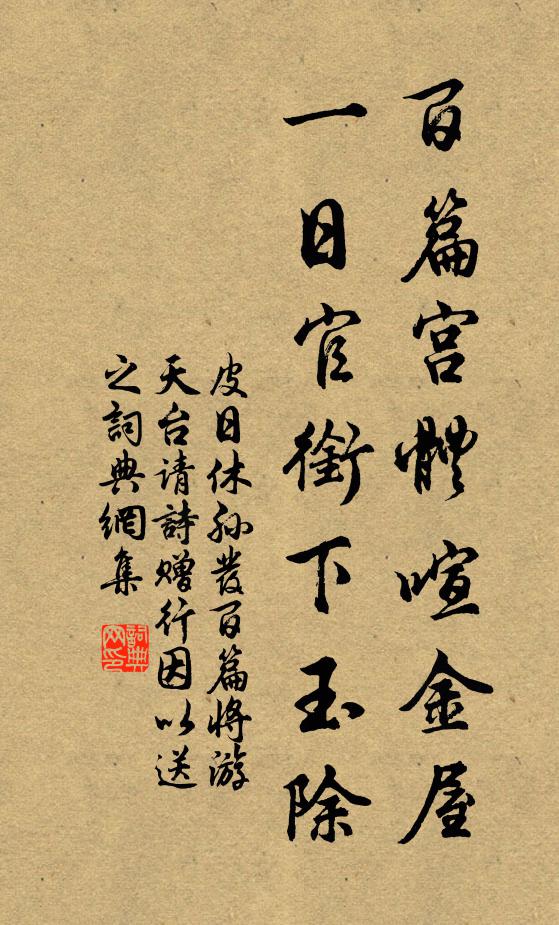 百篇宫體喧金屋
一日官銜下玉除
皮日休孫發百篇將游
天台请詩赠行因以送
之詞典網集
詞典网印